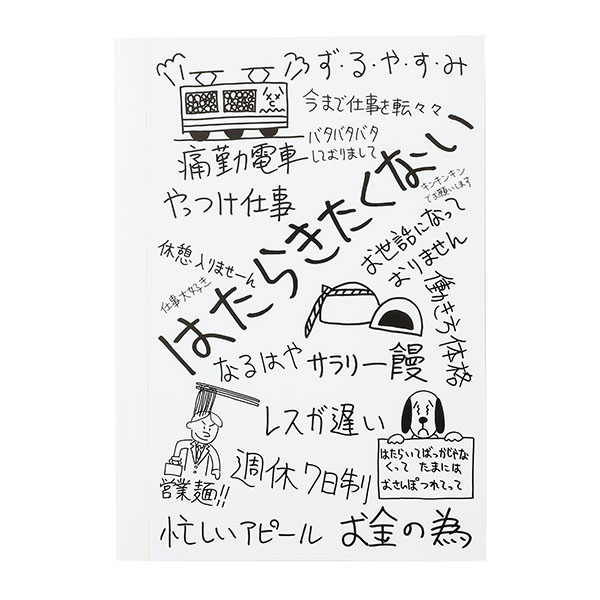 ず・る・や・す・み
今まで仕事を転々々
バタバタバタ
しておりまして
痛勤電車
キンキンキン
でお願いします
やっつけ仕事
はたらきたくない
お世話になって
おりません
休憩入りませーん
仕事大好き
働き方体格
なるはや
サラリー饅
レスが遅い
はたらいてばっかじゃな
くって たまには
おさんぽつれてって
週休7日制
営業麺!!
忙しいアピール
お金の為